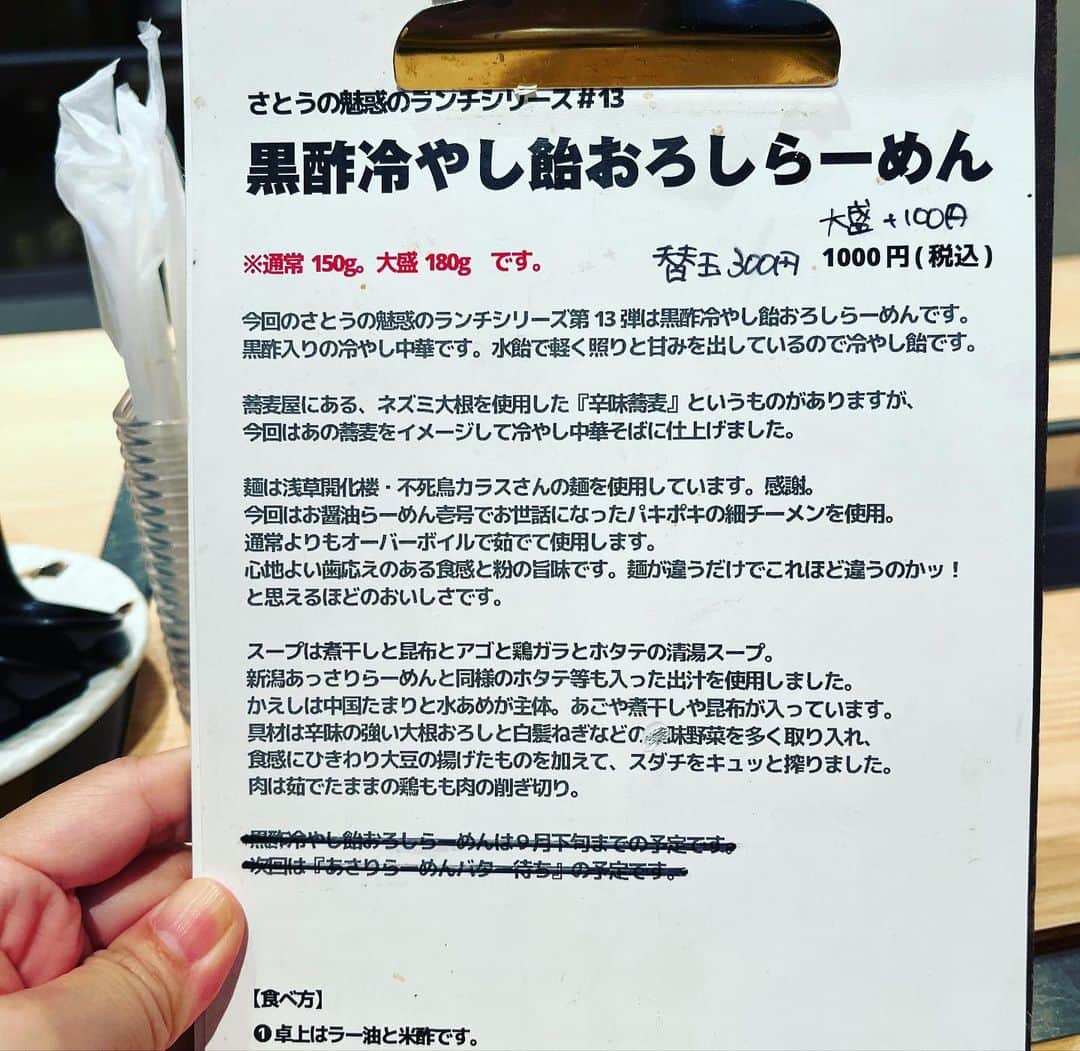 さとうの魅惑のランチシリーズ#13
黒酢冷やし飴おろしらーめん
大盛 +100円
※通常 150g。大盛 180g です。 替玉 300円 1000 円 ( 税込 )
今回のさとうの魅惑のランチシリーズ第 13 弾は黒酢冷やし飴おろしらーめんです。
黒酢入りの冷やし中華です。水飴で軽く照りと甘みを出しているので冷やし飴です。
蕎麦屋にある、ネズミ大根を使用した『辛味蕎麦』というものがありますが、
今回はあの蕎麦をイメージして冷やし中華そばに仕上げました。
麺は浅草開化楼・不死鳥カラスさんの麺を使用しています。感謝。
今回はお醤油らーめん壱号でお世話になったパキポキの細チーメンを使用。
通常よりもオーバーボイルで茹でて使用します。
心地よい歯応えのある食感と粉の旨味です。麺が違うだけでこれほど違うのかッ！
と思えるほどのおいしさです。
スープは煮干しと昆布とアゴと鶏ガラとホタテの清湯スープ。
新潟あっさりらーめんと同様のホタテ等も入った出汁を使用しました。
かえしは中国たまりと水あめが主体。あごや煮干しや昆布が入っています。
具材は辛味の強い大根おろしと白髪ねぎなどの味野菜を多く取り入れ、
食感にひきわり大豆の揚げたものを加えて、スダチをキュッと搾りました。
肉は茹でたままの鶏もも肉の削ぎ切り。
黒酢冷やし飴おろしらーめんは９月下旬までの予定です。
次回は『あさりらーめんバター待ち』の予定です。
【食べ方】
❶卓上はラー油と米酢です。